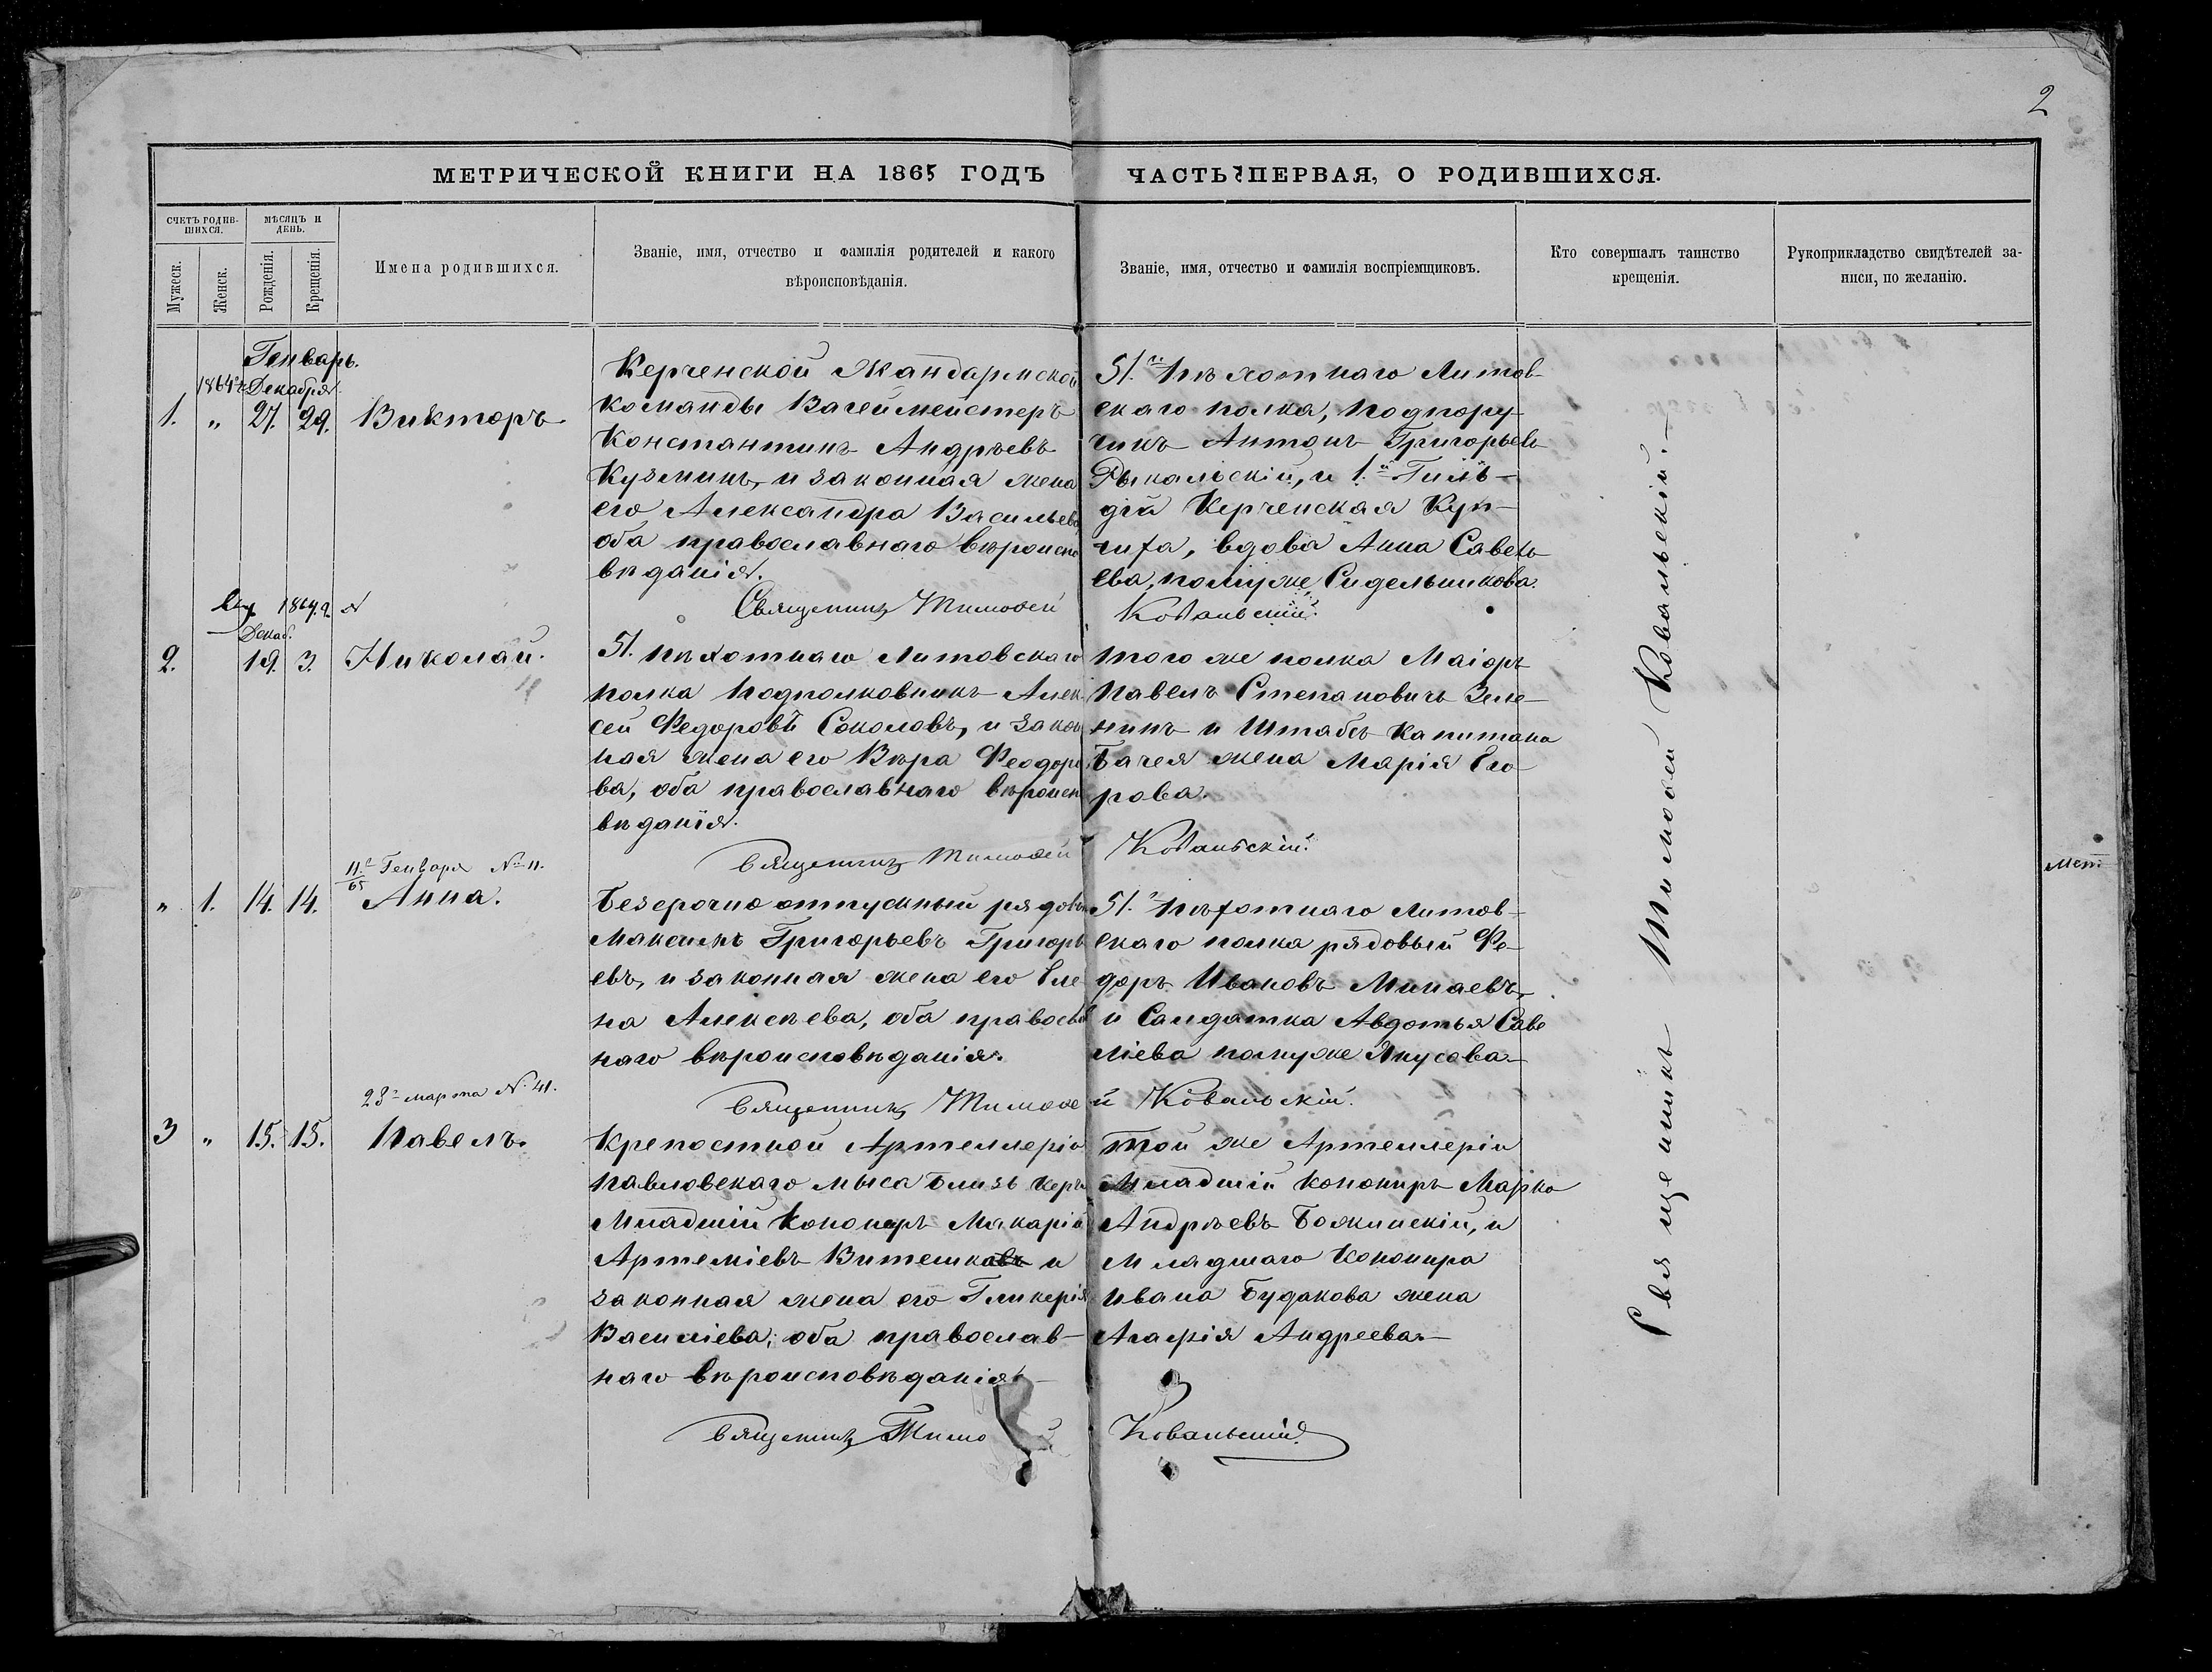 2
МЕТРИЧЕСКОЙ КНИГИ НА 1865 ГОДЪ
ЧАСТЬ ПЕРВАЯ, О РОДИВШИХСЯ.
СЧЕТЪ РОДИВ-
ШИХСЯ.
МѢСЯЦЪ И
ДЕНЬ.
Мужеск.
Женск.
Рожденія.
Крещенія.
Имена родившихся.
Званіе, имя, отчество и фамилія родителей и какого
вѣроисповѣданія.
Званіе, имя, отчество и фамилія воспріемщиковъ.
Кто совершалъ таинство
крещенія.
Рукоприкладство свидѣтелей за-
писи, по желанію.
Генварь.
1864 г. Декабря
1. " 27. 29. Викторъ.
Керченской Жандармской
команды Вагеймейстеръ
Константинъ Андреевъ
Кузминъ, и законная жена
его Александра Васильева
оба православнаго вѣроиспо
вѣданія.
Священникъ Тимофей
51.го Пѣхотнаго Литов-
скаго полка, подпору-
чикъ Антонъ Григорьевъ
Рыкальскій, и 1.й Гиль-
діи Керченская Куп-
чиха, вдова Анна Савель
ева, помуже, Сидельникова.
Ковальскій.
1864. г.
Декаб.
2. 19. 3. Николай.
51. пѣхотнаго Литовскаго
полка Подполковникъ Алек
сей Федоровъ Соколовъ, и закон
ная жена его Вѣра Феодоро
ва, оба православнаго вѣроисп
вѣданія.
Священникъ Тимофей
того же полка Маіоръ
Павелъ Степановичъ Зеле-
нинъ и Штабсъ Капитана
Бачея жена Марія Его
рова.
Ковальскій.
11.го Генваря № 11.
65
" 1. 14. 14. Анна.
Безсрочно отпускный рядовый
Максимъ Григорьевъ Григорь
евъ, и законная жена его Еле
на Алексѣева, оба православ
наго вѣроисповѣданія.
Священникъ Тимофе
51.го Пѣхотнаго Литов-
скаго полка рядовый Фе-
доръ Ивановъ Минаевъ,
и Салдатка Авдотья Саве
ліева помуже Янусова
й Ковальскій.
Мет.
28 марта № 41.
3 " 15. 15. Павелъ.
Крепостной Артеллеріи
Павловскаго мыса близь Керчи
Младшій Кононеръ Макарій
Артеміевъ Витешковъ и
законная жена его Гликерія
Василіева; оба православ-
наго вѣроисповѣданія
Священникъ Тимо
той же Артеллеріи
Младшій Конониръ Марко
Андреевъ Божинскій, и
Младшаго Кононира
Ивана Будакова жена
Агафія Андреева
Ковальскій.
Священникъ Тимофей Ковальскій.